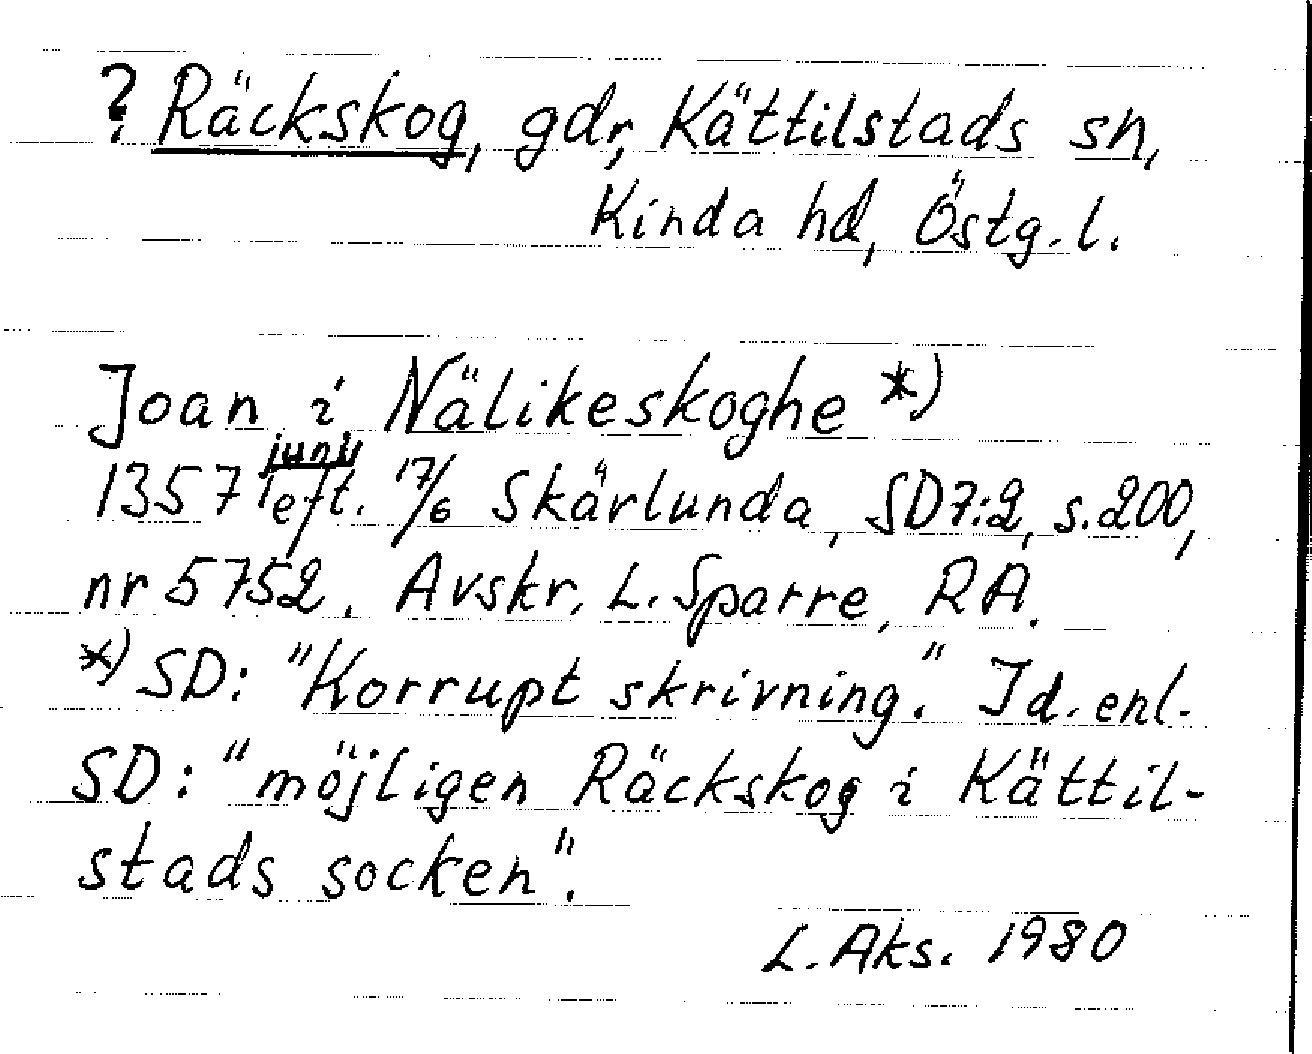 ? Räckskog, gdr, Kättilstads sn,
Kinda hd, Östg. l.
Joan i Nälikeskoghe *)
juni
1357 eft. 17/6 Skärlunda, SD 7:2, s. 200,
nr 5752. Avskr. L. Sparre, RA.
*) SD: "Korrupt skrivning." Id. enl.
SD: "möjligen Räckskog i Kättil-
stads socken".
L. Aks. 1980